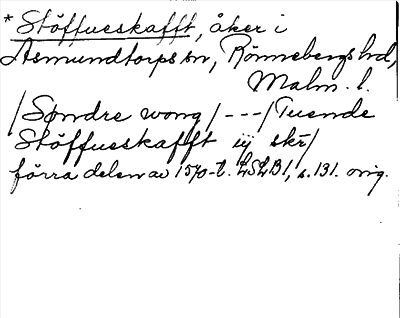 * Stöffueskafft, åker i
Asmundtorps sn, Rönnebergs hd,
Malm. l.
/Søndre wong/---/Tuende
Stöffueskafft iij skr/
förra delen av 1570-t. LSLB1, s. 131. orig.